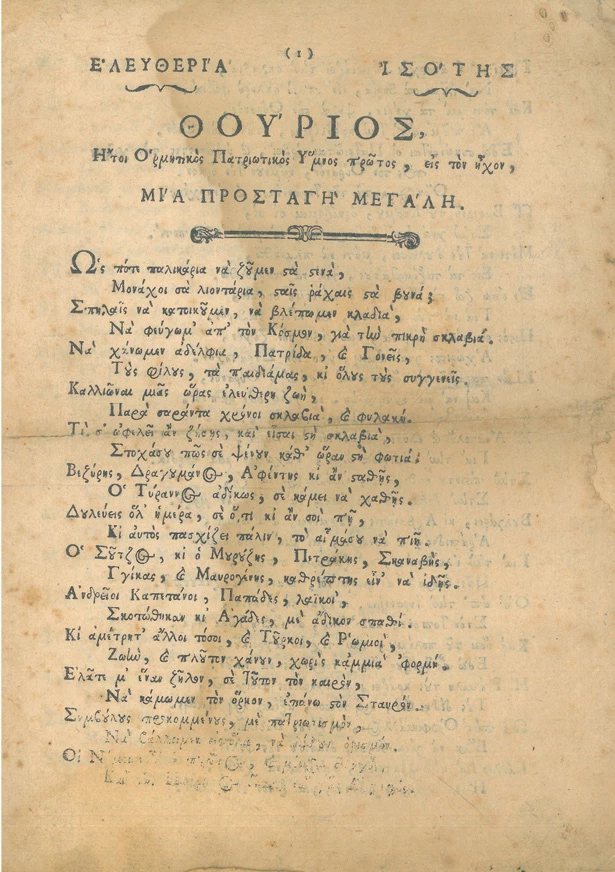 (1)
Ε'ΛΕΥΘΕΡΙ'Α Ἰ'ΣΟ'ΤΗΣ
ΘΟΥ'ΡΙΟΣ,
Η῎τοι Ο῾ρμητικὸς Πατριωτικὸς Υ῞μνος πρῶτος, εἰς τὸν ἦχον,
ΜΙ'Α ΠΡΟΣΤΑΓΗ' ΜΕΓΑ'ΛΗ.
Ω῾ς πότε παλικάρια νὰ ζοῦμεν ςὰ ςενὰ,
Μονάχοι σὰ λιοντάρια, ςαῖς ῥάχαις ςὰ βουνά;
Σπηλαῖς νὰ κατοικοῦμεν, νὰ βλέπωμεν κλαδιὰ,
Νὰ φεύγωμ' ἀπ' τὸν Κόσμον, γιὰ τὴν πικρὴ σκλαβιά.
Νὰ χάνωμεν ἀδέλφια, Πατρίδα, καὶ Γονεῖς,
Τοὺς φίλους, τὰ παιδιάμας, κι ὅλους τοὺς συγγενεῖς.
Καλλιῶναι μιᾶς ὥρας ἐλεύθερη ζωὴ,
Παρὰ σαράντα χρόνοι σκλαβιὰ, καὶ φυλακή.
Τί σ' ὠφελεῖ ἂν ζήσῃς, καὶ εἶσαι ςὴ σκλαβιὰ,
Στοχάσου πῶς σὲ ψένουν καθ' ὥραν ςὴ φωτιά.
Βεζύρης, Δραγουμάνος, Α'φέντης κι ἂν ςαθῇς,
Ο῾ Τύραννος ἀδίκως, σὲ κάμει νὰ χαθῇς.
Δουλεύεις ὅλ' ἡμέρα, σὲ ὅ,τι κι ἂν σοὶ πῇ,
Κι αὐτὸς πασχίζει πάλιν, τὸ αἷμάσου νὰ πιῇ.
Ο῾ Σοῦτζος, κι ὁ Μουρούζης, Πετράκης, Σκαναβῆς,
Γγίκας, καὶ Μαυρογένης, καθρέπτης εἶν' νὰ ἰδῇς.
Α'νδρεῖοι Καπετάνοι, Παπάδες, λαϊκοὶ,
Σκοτώθηκαν κι Α'γάδες, μὲ ἄδικον σπαθί.
Κι ἀμέτρητ' ἄλλοι τόσοι, καὶ Τοῦρκοι, καὶ Ρ'ωμιοὶ,
Ζωὴν, καὶ πλοῦτον χάνουν, χωρὶς κᾀμμιὰ 'φορμή.
Ε'λᾶτε μ' ἕναν ζῆλον, σὲ τοῦτον τὸν καιρὸν,
Νὰ κάμωμεν τὸν ὅρκον, ἐπάνω ςὸν Σταυρόν.
Συμβούλους προκομμένους, μὲ πατριωτισμὸν,
Νὰ βάλλωμεν
Οἱ